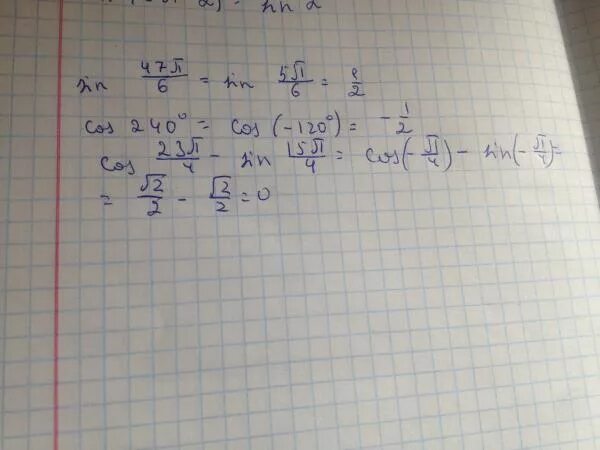 sin 47π/6 = sin 5π/6 = 1/2
cos 240° = cos (-120°) = -1/2
cos 23π/4 - sin 15π/4 = cos(-π/4) - sin(-π/4) =
= √2/2 - √2/2 = 0